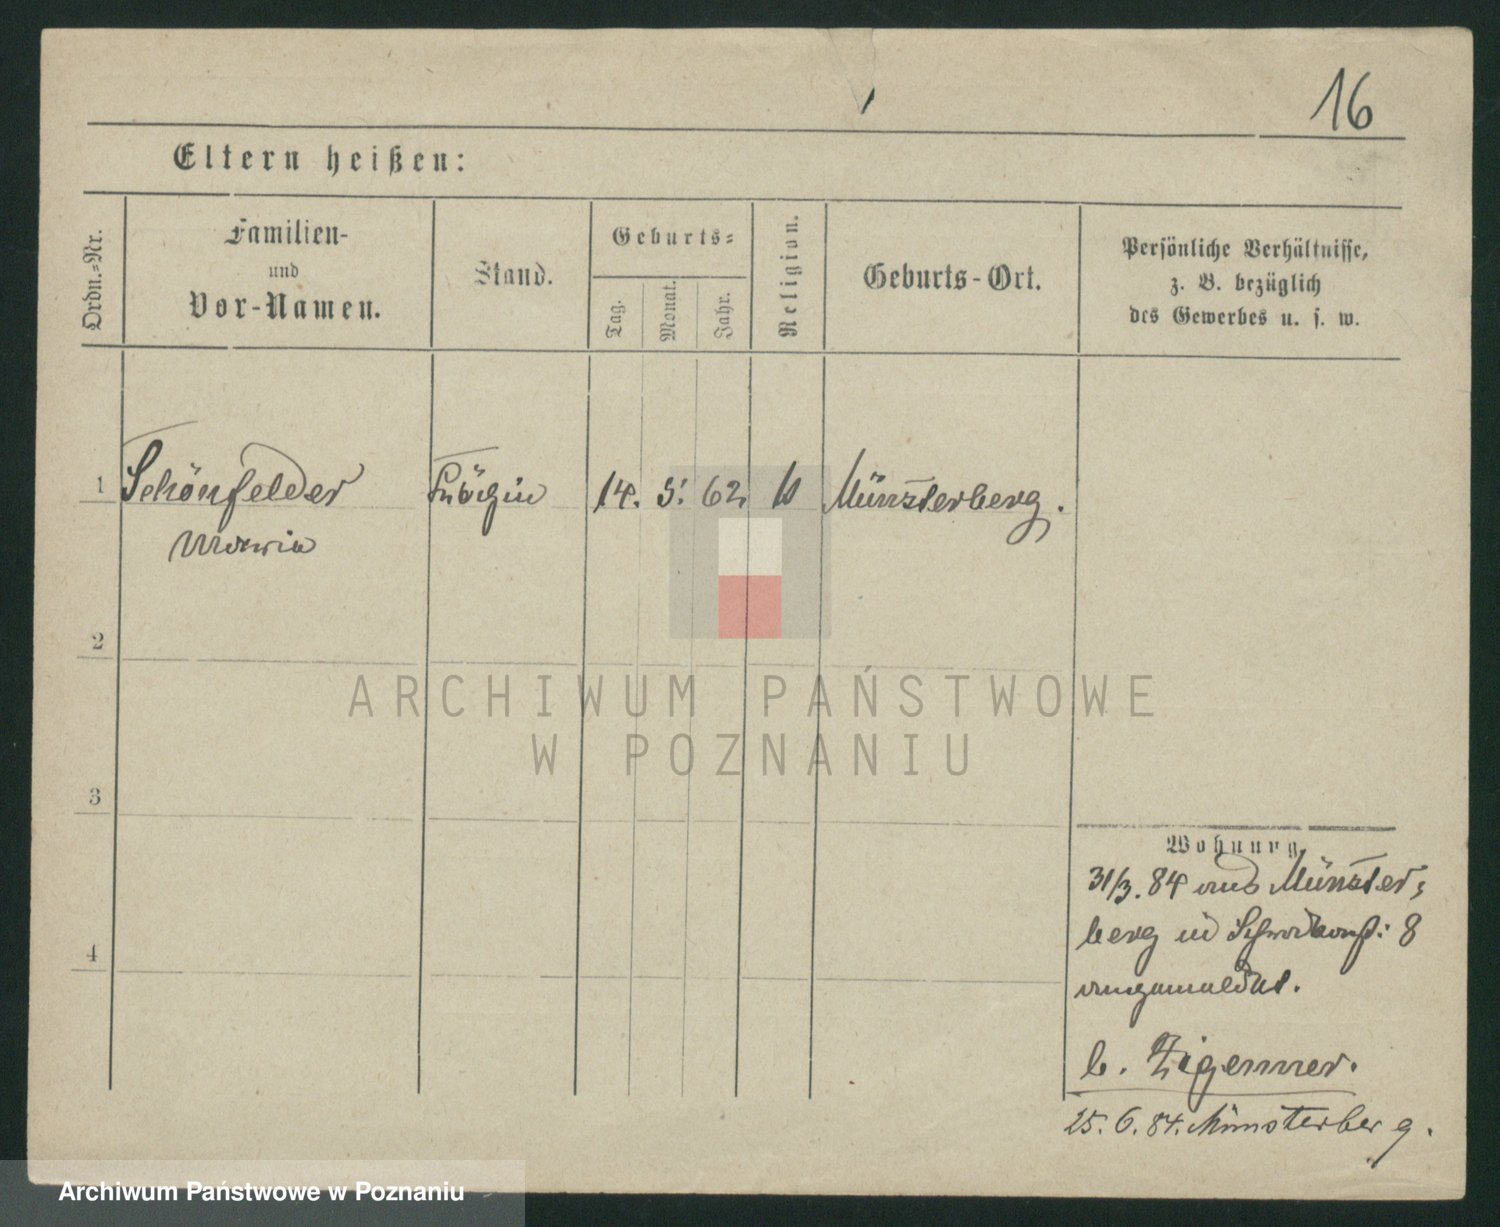 16
Eltern heißen:
Ordn.-Nr.
Familien-
und
Vor-Namen.
Stand.
Geburts-
Tag.
Monat.
Jahr.
Religion.
Geburts-Ort.
Persönliche Verhältnisse,
z. B. bezüglich
des Gewerbes u. s. w.
1 Schönfelder 14. 5. 62 Münsterberg.
Maria
2
3
4
Wohnung
31/3. 84 aus Münster-
berg in 8
angemeldet.
b.
25. 6. 84. Münsterberg.
ARCHIWUM PAŃSTWOWE
W POZNANIU
Archiwum Państwowe w Poznaniu